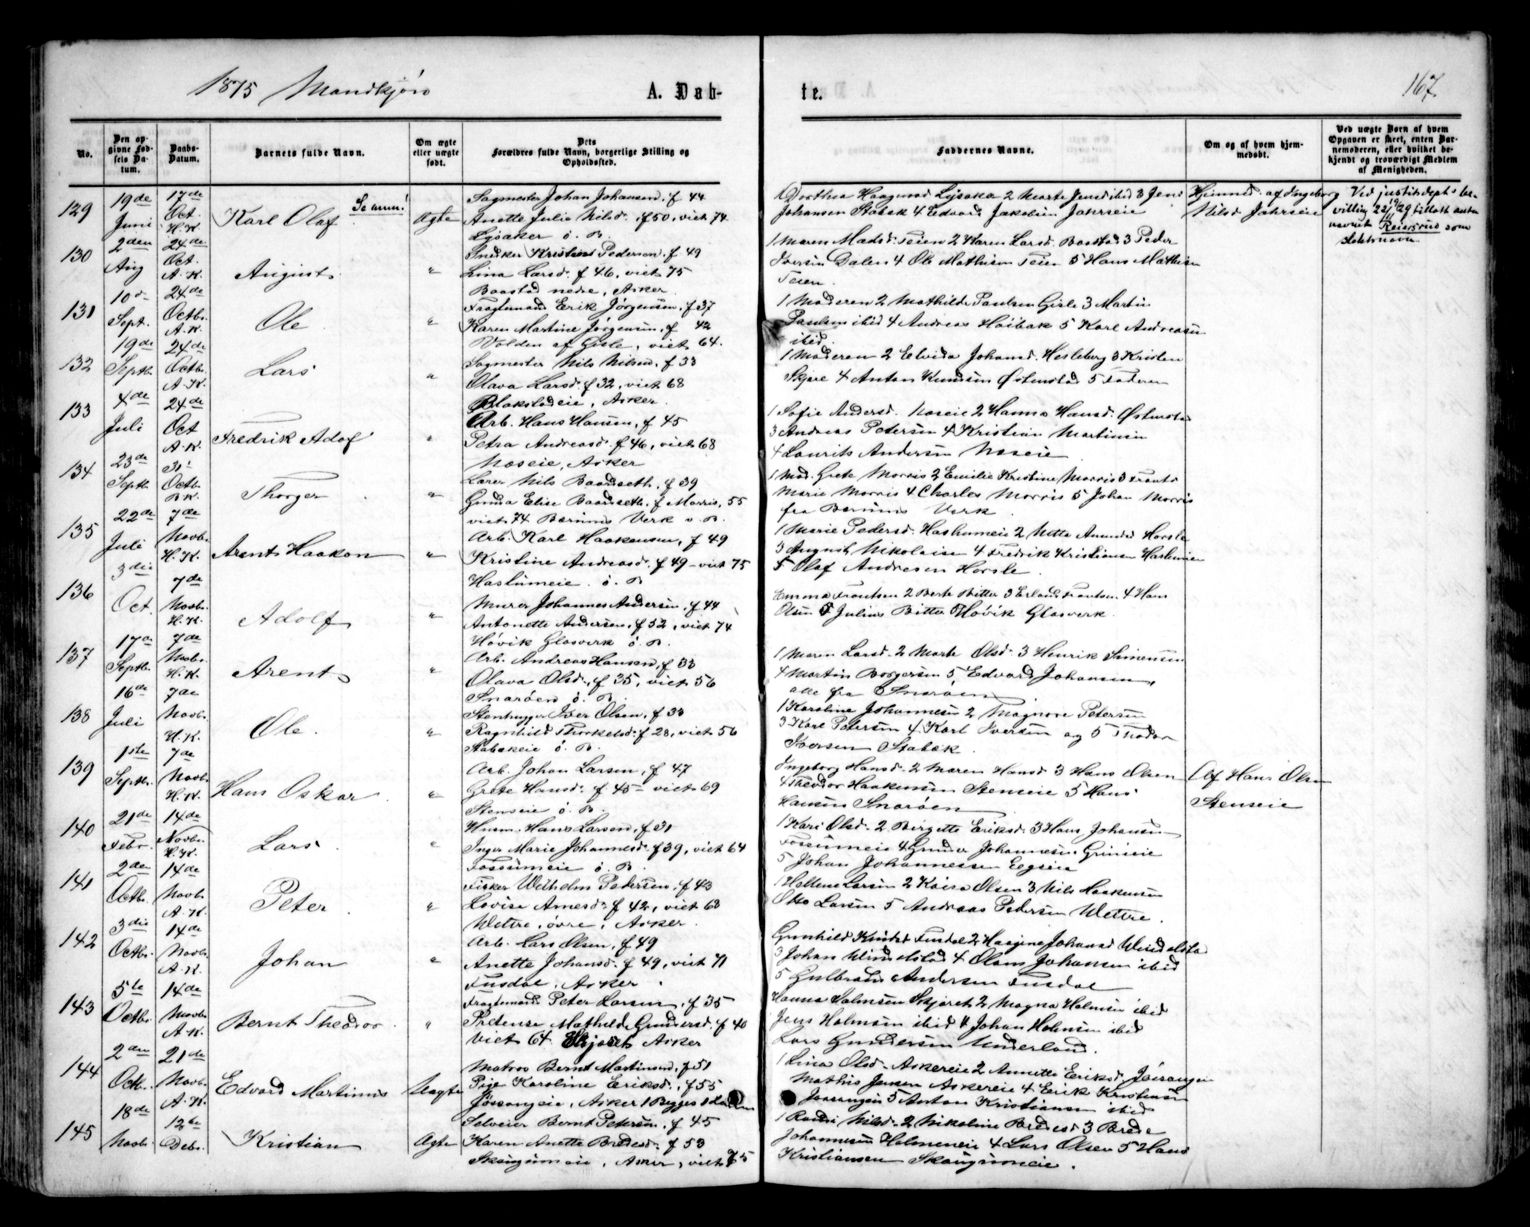 1875 Mandkjøn
A. Døb-
te.
167.
No.
Den op-
givne Fød-
sels Da-
tum.
Daabs-
Datum.
Barnets fulde Navn.
Om ægte
eller uægte
født.
Dets
Forældres fulde Navn, borgerlige Stilling og
Opholdssted.
Faddernes Navne.
Om og af hvem hjem-
medøbt.
Ved uægte Børn af hvem
Opgaven er skeet, enten Bar-
nemoderen, eller hvilket be-
kjendt og troværdigt Medlem
af Menigheden.
129
19de
Juni
17de
Oct.
H.K.
Karl Olaf
Se anm!
Ægte
Sagmester Johan Johansen, f 44
Anette Julie Nilsd. f 50, viet 74
Lysaker ö. B.
Johansen Stabek 4 Edvard Jakobsen Jahrseie
Hjemmed. af Ingeborg
Nilsd Jahrseie
Ved justitsdepts be-
villing 22/29 tillatt anta
navnet Reiersrud som
slektsnavn
130
2den
Aug
24de
Oct.
A.K.
August
"
Snedker Kristian Pedersen f 49
Lina Larsd. f 46, viet 75
Baastad nedre, Asker.
1 Maren Madsd. Teien 2 Karen Larsd. Baastad 3 Peder
Iversen Dalen 4 Ole Mathisen Teien 5 Hans Mathisen
Teien
131
10de
Sept.
24de
Octbr.
A.K.
Ole
"
Fragtemand Erik Jörgensen, f 37
Karen Martine Jørgensen, f 42
Volden af Gisle, viet 64.
1 Moderen 2 Mathilde Paulsen Gisle 3 Martin
Paulsen ibid 4 Andreas Høibak 5 Karl Andreasen
ibid.
132
19de
Septb.
24de
Octbr.
A.K.
Lars
"
Sagmester Nils Nilsen, f 33
Olava Larsd. f 32, viet 68
Blakstadeie, Asker.
1 Moderen 2 Elvida Johansd. Hesleberg 3 Kristen
Skjere 4 Anton Knudsen Østenstad 5 Faderen
133
4de
Juli
24de
Oct
A.K.
Fredrik Adof
"
Arb. Hans Hansen, f 45
Petra Andreasd. f 46, viet 68
Næseie, Asker
1 Sofie Andersd. Næseie 2 Hanna Hansd. Østensta
3 Andreas Petersen 4 Kristian Martinsen
4 Laurits Andersen Næseie
134
23de
Septb.
Octb.
B.K.
Thorger
"
Lærer Nils Baardseth, f 39
Gunda Elise Baardseth, f Morris, 55
viet 74 Bærums Verk v. B.
1 Mod. Grete Morris 2 Emilie Kristine Morris 3 Frants
Marie Morris 4 Charles Morris 5 Johan Morris
fra Bærums Verk.
135
22de
Juli
7de
Novb.
H.K.
Arent Haakon
"
Arb. Karl Haakensen, f 49
Kristine Andreasd. f 49 - viet 75
Haslumeie. ö. B.
1 Marie Pedersd. Haslumeie 2 Mette Amundsd Horsle
3 August Nikolaisen 4 Fredrik Kristiansen Haslumeie
5 Olaf Andresen Horsle.
136
3die
Oct.
7de
Novbr.
H.K.
Adolf
"
Murer Johannes Andersen, f 44
Antonette Andersen, f 52, viet 74
Høvik Glasverk ö. B.
Olsen 5 Julius Bitter Høvik Glasverk.
137
17de
Septbr.
7de
Novbr.
H.K.
Arent
"
Arb. Andreas Hansen, f 33
Olava Olsd., f 35, viet 56
Snarøen ö. B.
1 Maren Larsd. 2 Marte Olsd. 3 Henrik Simensen
4 Martin Borgersen 5 Edvard Johansen,
alle fra Snarøen
138
16de
Juli
7de
Novbr.
H.K.
Ole
"
Stenhugger Iver Olsen, f 33
Ragnhild Thorkelsd. f 28, viet 56
Stabekeie ö. B.
1 Karoline Johannesen 2 Magnor Petersen
3 Karl Petersen 4 Karl Iversen og 5 Theodor
Iversen Stabek.
139
1ste
Septbr.
7de
Novbr.
H.K.
Hans Oskar
"
Arb. Johan Larsen, f 47
Grete Hansd. f 45 - viet 69
Stenseie ö. B.
Ingeborg Hansd. 2 Maren Hansd 3 Hans Olsen
4 Theodor Haakensen Stenseie 5 Hans
Hansen Snarøen
Af Hans Olsen
Stenseie
140
21de
Febr.
14de
Novbr.
H.K.
Lars
"
Husm. Hans Larsen, f 31
Inger Marie Johannesd. f 39, viet 64
Fossumeie ö. B.
1 Kari Olsd. 2 Birgitte Eriksd. 3 Hans Johansen
Fossumeie 4 Gunder Johannesen Grinieie
5 Johan Johannessen Eegseie
141
2den
Octb.
14de
Novb.
A.K.
Peter
"
Fisker Wilhelm Pedersen, f 43
Lovise Arnesd. f 42, viet 63
Wettre, øvre, Asker.
1 Hellene Larsen 2 Kaisa Olsen 3 Nils Haakensen
Otto Larsen 5 Andreas Pedersen Wettre.
142
3die
Octbr.
14de
Novb.
A.K.
Johan
"
Arb. Lars Olsen, f 49
Anette Johansd. f 49, viet 71
Fusdal, Asker.
3 Johan Windelstad 4 Olaus Johansen ibid
5 Gulbrand Andersen Fusdal
143
5te
Octbr.
14de
Novbr.
A.K.
Bernt Theodor
"
Fragtemand Peter Larsen, f 35
Petense Mathilde Gundersd. f 40
Viet 64 Skjæret Asker
Hanna Salmesen Skjæret 2 Magna Holmsen ibid
Jens Holmsen ibid 4 Johan Holmsen ibid
Lars Gundersen Underland.
144
2den
Octb.
21de
Novbr.
A.K.
Edvard Martinius
Uægte
Matros Bernt Martinsen, f 51
Pige Karoline Eriksd., f 55
Jøssongeie, Asker 1 Begges 1 Leier
1 Lina Olsd. Askereie 2 Annette Eriksd. Jøssongeie
Mathis Jensen Askereie 4 Erik Kristiansen
Jøssongeie 5 Anton Kristiansen ibid
145
18de
Novb.
12te
Debr.
Kristian
Ægte
Selveier Bernt Petersen, f 45
Karen Anette Bredesd. f 53
Skaugumeie, Asker, viet 75
1 Randi Nilsd. 2 Nikoline Bredesd 3 Brede
Johannesen Holmeneie 4 Lars Olsen 5 Hans
Kristiansen Skaugumeie.